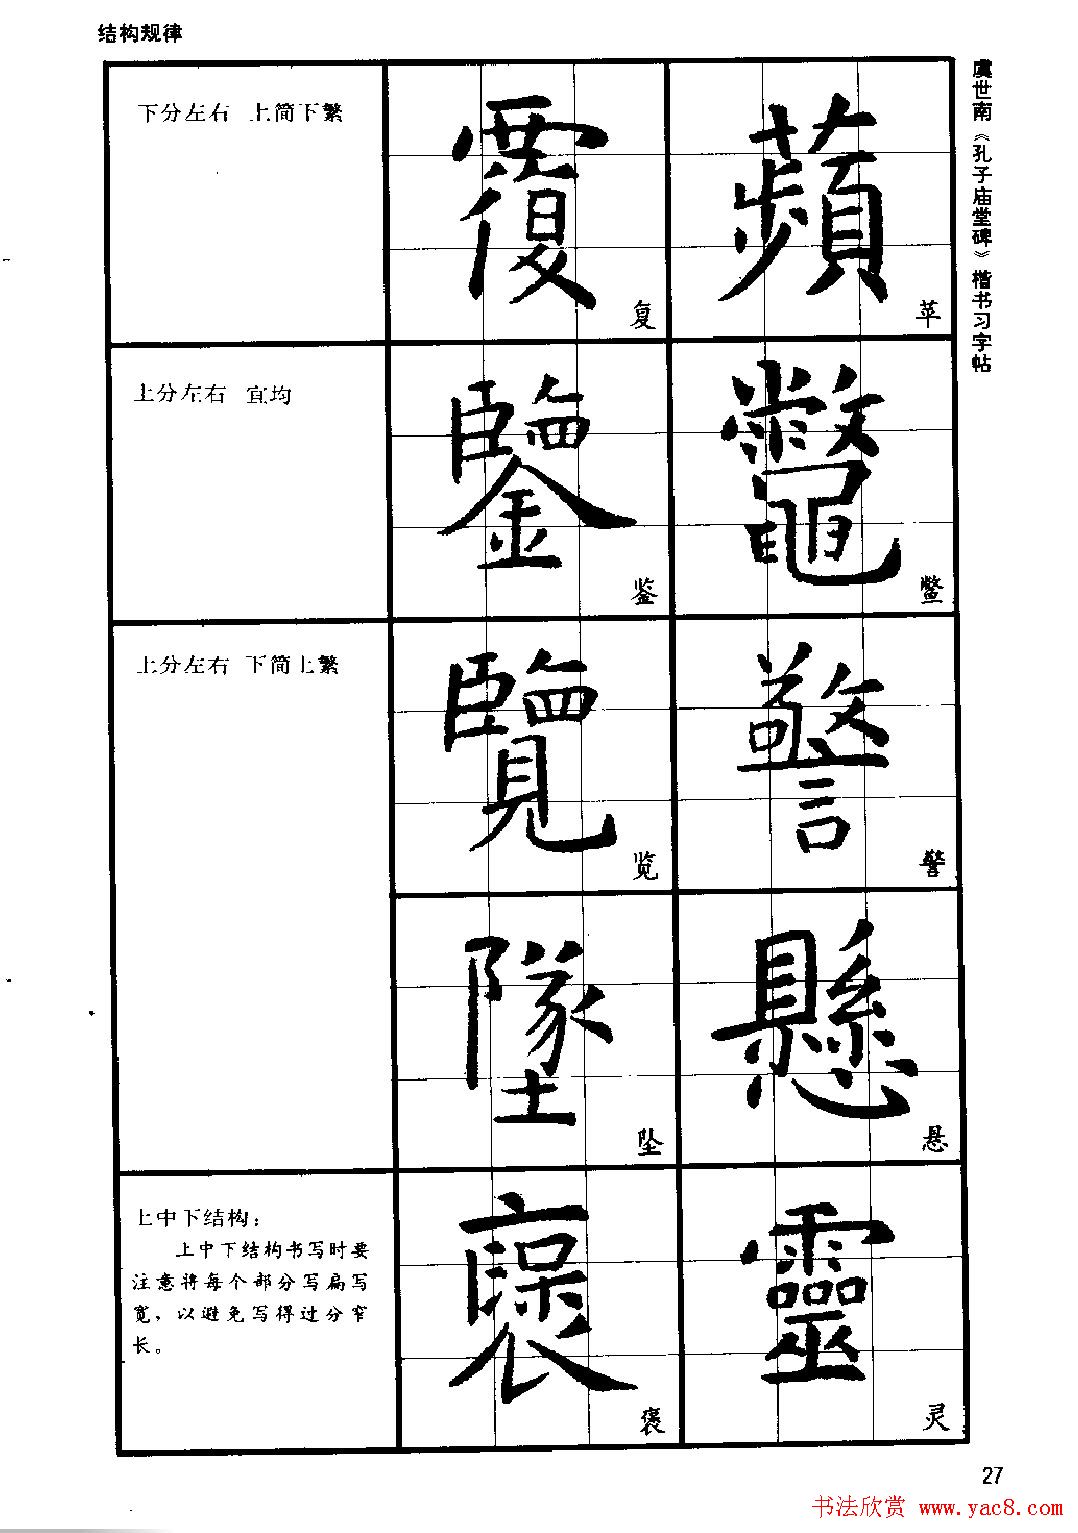 结构规律
虞世南《孔子庙堂碑》楷书习字帖
下分左右 上简下繁
覆
复
蘋
苹
上分左右 宜均
鑒
鉴
鼈
鳖
上分左右 下简上繁
覽
览
警
警
墜
坠
懸
悬
上中下结构：
上中下结构书写时要
注意将每个部分写扁写
宽，以避免写得过分窄
长。
褒
靈
灵
27
书法欣赏 www.yac8.com